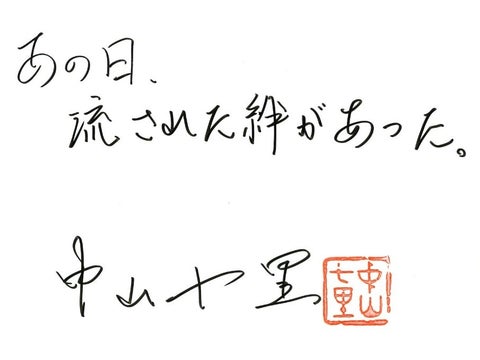 あの日、
流された絆があった。
中山七里
中山
七里